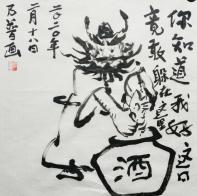 你知道我好这口
竟敢躲在这里
二〇二〇年
二月十八日
乃普画
酒